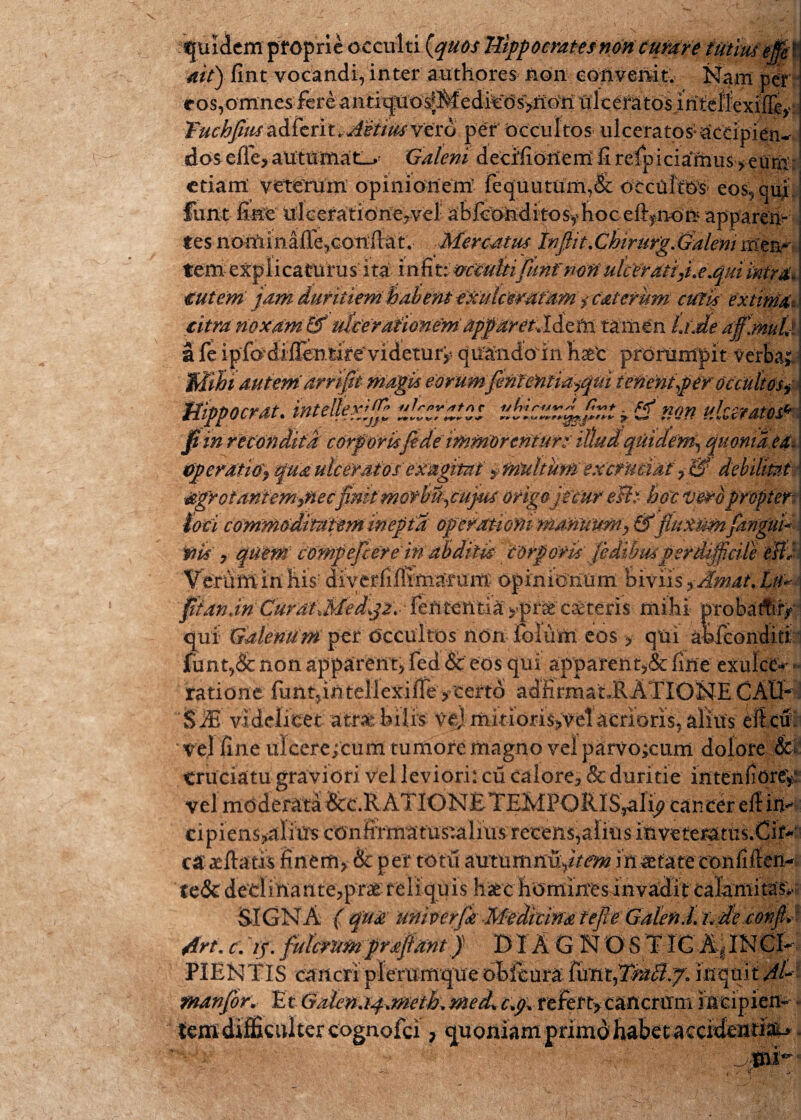 quidem proprie occulti (quos Hippocrates non curare tutius esse
ait) sint vocandi, inter authores non convenit. Nam per
eos, omnes ferè antiquos Medicos, non ulceratos intellexisse,
Fuchsius adserit. Aëtius verò per occultos ulceratos accipien-
dos esse, autumat. Galeni decisionem si respiciamus, eum
etiam veterum opinionem sequutum, & occultos eos, qui
sunt sine ulceratione, vel absconditos, hoc est, non apparen-
tes nominasse, constat. Mercatus Instit. Chirurg. Galeni men-
tem explicaturus ita infit: occulti sunt non ulcerati, i.e. qui intra
cutem jam duritiem habent exulceratam, caterum cutis extima
citra noxam & ulcerationem apparet. Idem tamen l.1.de aff.mul.
à se ipso dissentire videtur, quando in hæc prorumpit verba;
Mihi autem arrisit magis eorum sententia, qui tenent, per occultos,
Hippocrat. intellexisse ulceratos ubicunq; sint, & non ulceratos
si in recondita corporis sede immorentur: illud quidem, quonia ea
operatio, qua ulceratos exagitat, multum excruciat, & debilitat
agrotantem, nec finit morbū, cujus origo jecur est: hoc verò propter
loci commoditatem inepta operationi manuum, & fluxum sangui-
nis, quem compescere in abditis corporis sedibus perdifficile est.
Verùm in his diversissimarum opinionum biviis, Amat. Lu-
sitan. in Curat. Med. 32. sententia, præ cæteris mihi probatur,
qui Galenum per occultos non solùm eos, qui absconditi
sunt, & non apparent, sed & eos qui apparent, & sine exulce-
ratione sunt, intellexisse, certò adfirmat. RATIONE CAU-
SÆ videlicet atræ bilis vel mitioris, vel acrioris, alius est cū
vel sine ulcere; cum tumore magno vel parvo; cum dolore &
cruciatu graviori vel leviori: cū calore, & duritie intensiore,
vel moderatâ &c. RATIONE TEMPORIS, aliꝰ cancer est in-
cipiens, alius confirmatus: alius recens, alius inveteratus. Cir-
ca æstatis finem, & per totū autumnū, item in ætate consisten-
te & declinante, præ reliquis hæc homines invadit calamitas.
SIGNA (qua universa Medicina teste Galen. l. 1. de const.
Art. c. 15. fulcrum prastant) DIAGNOSTICA, INCI-
PIENTIS cancri plerumque obscura sunt, Tract. 7. inquit Al-
mansor. Et Galen. 14. meth. med. c. 9. refert, cancrum incipien-
tem difficulter cognosci, quoniam primò habet accidentia
mi-